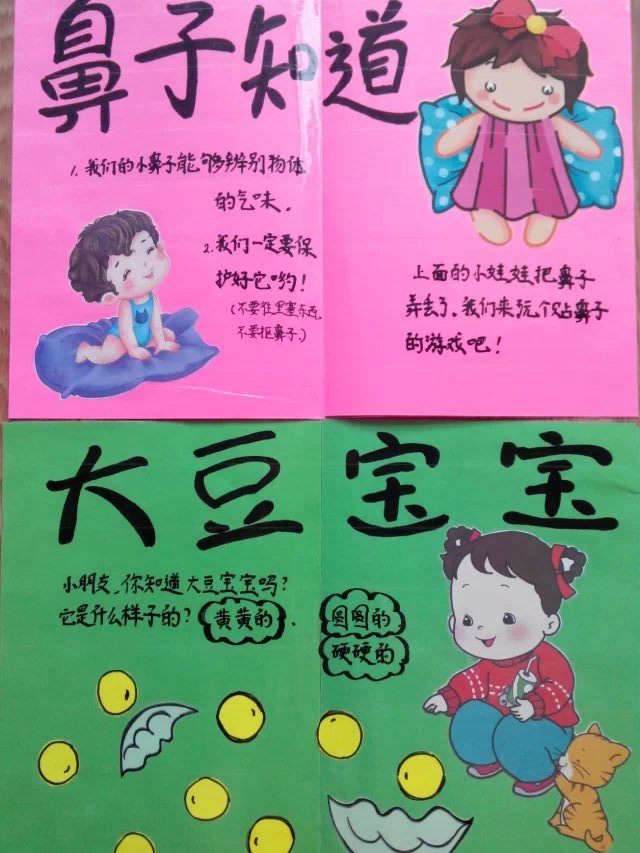 鼻子知道
1. 我们的小鼻子能够辨别物体
的气味.
2. 我们一定要保
护好它哟!
(不要往里塞东西,
不要抠鼻子.)
上面的小娃娃把鼻子
弄丢了,我们来玩个贴鼻子
的游戏吧!
大豆宝宝
小朋友,你知道大豆宝宝吗?
它是什么样子的? 黄黄的.
圆圆的
硬硬的